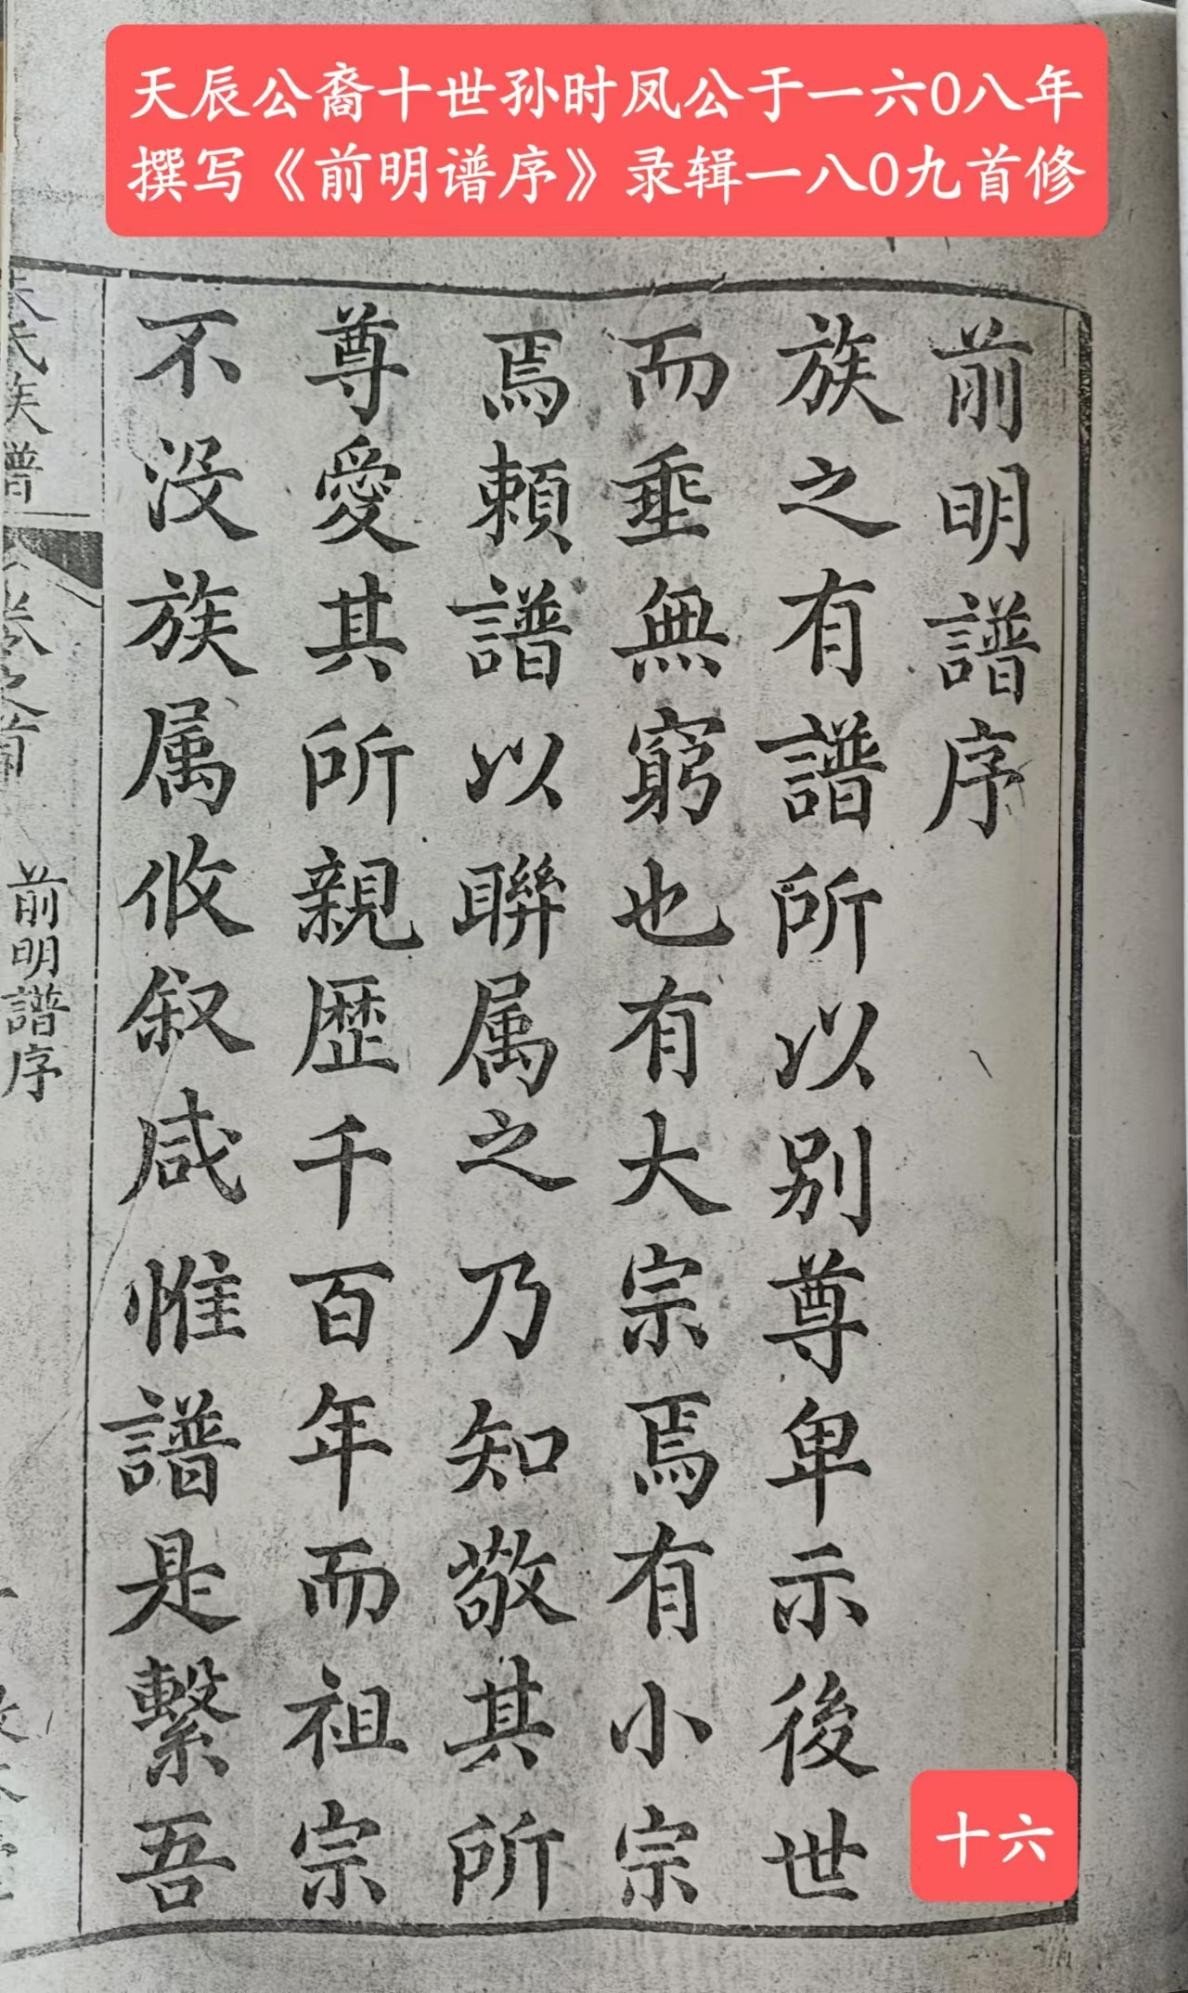 天辰公裔十世孙时凤公于一六0八年
撰写《前明谱序》录辑一八0九首修
前明譜序
族之有譜所以别尊卑示後世
而垂無窮也有大宗焉有小宗
焉頼譜以聯属之乃知敬其所
尊愛其所親歴千百年而祖宗
不没族属攸叙咸惟譜是繫吾
氏族譜
卷之首
前明譜序
十六